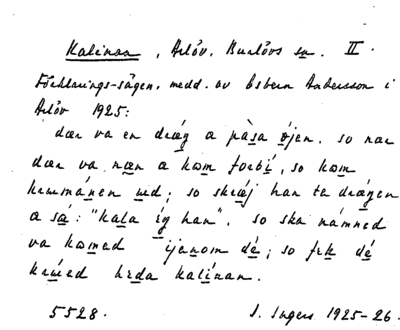 Kalinan, Arlöv, Burlövs sn. II.
Förklarings-sägen, medd. av Esbern Andersson i
Arlöv 1925:
dær va en dræ̱ŋ a pàsa ö̱jen. so nar
dær va næ̱n a kom forbí̱, so kom
krummánen u̱d; so skræ̱j han te dræ̱ŋen
a sá̱: "kala í̱ŋ han". so ska námned
va komed ijenom dé̱; so fek dé̱
kru̱ed heda kalí̱nan.
5528. S. Ingers 1925-26.